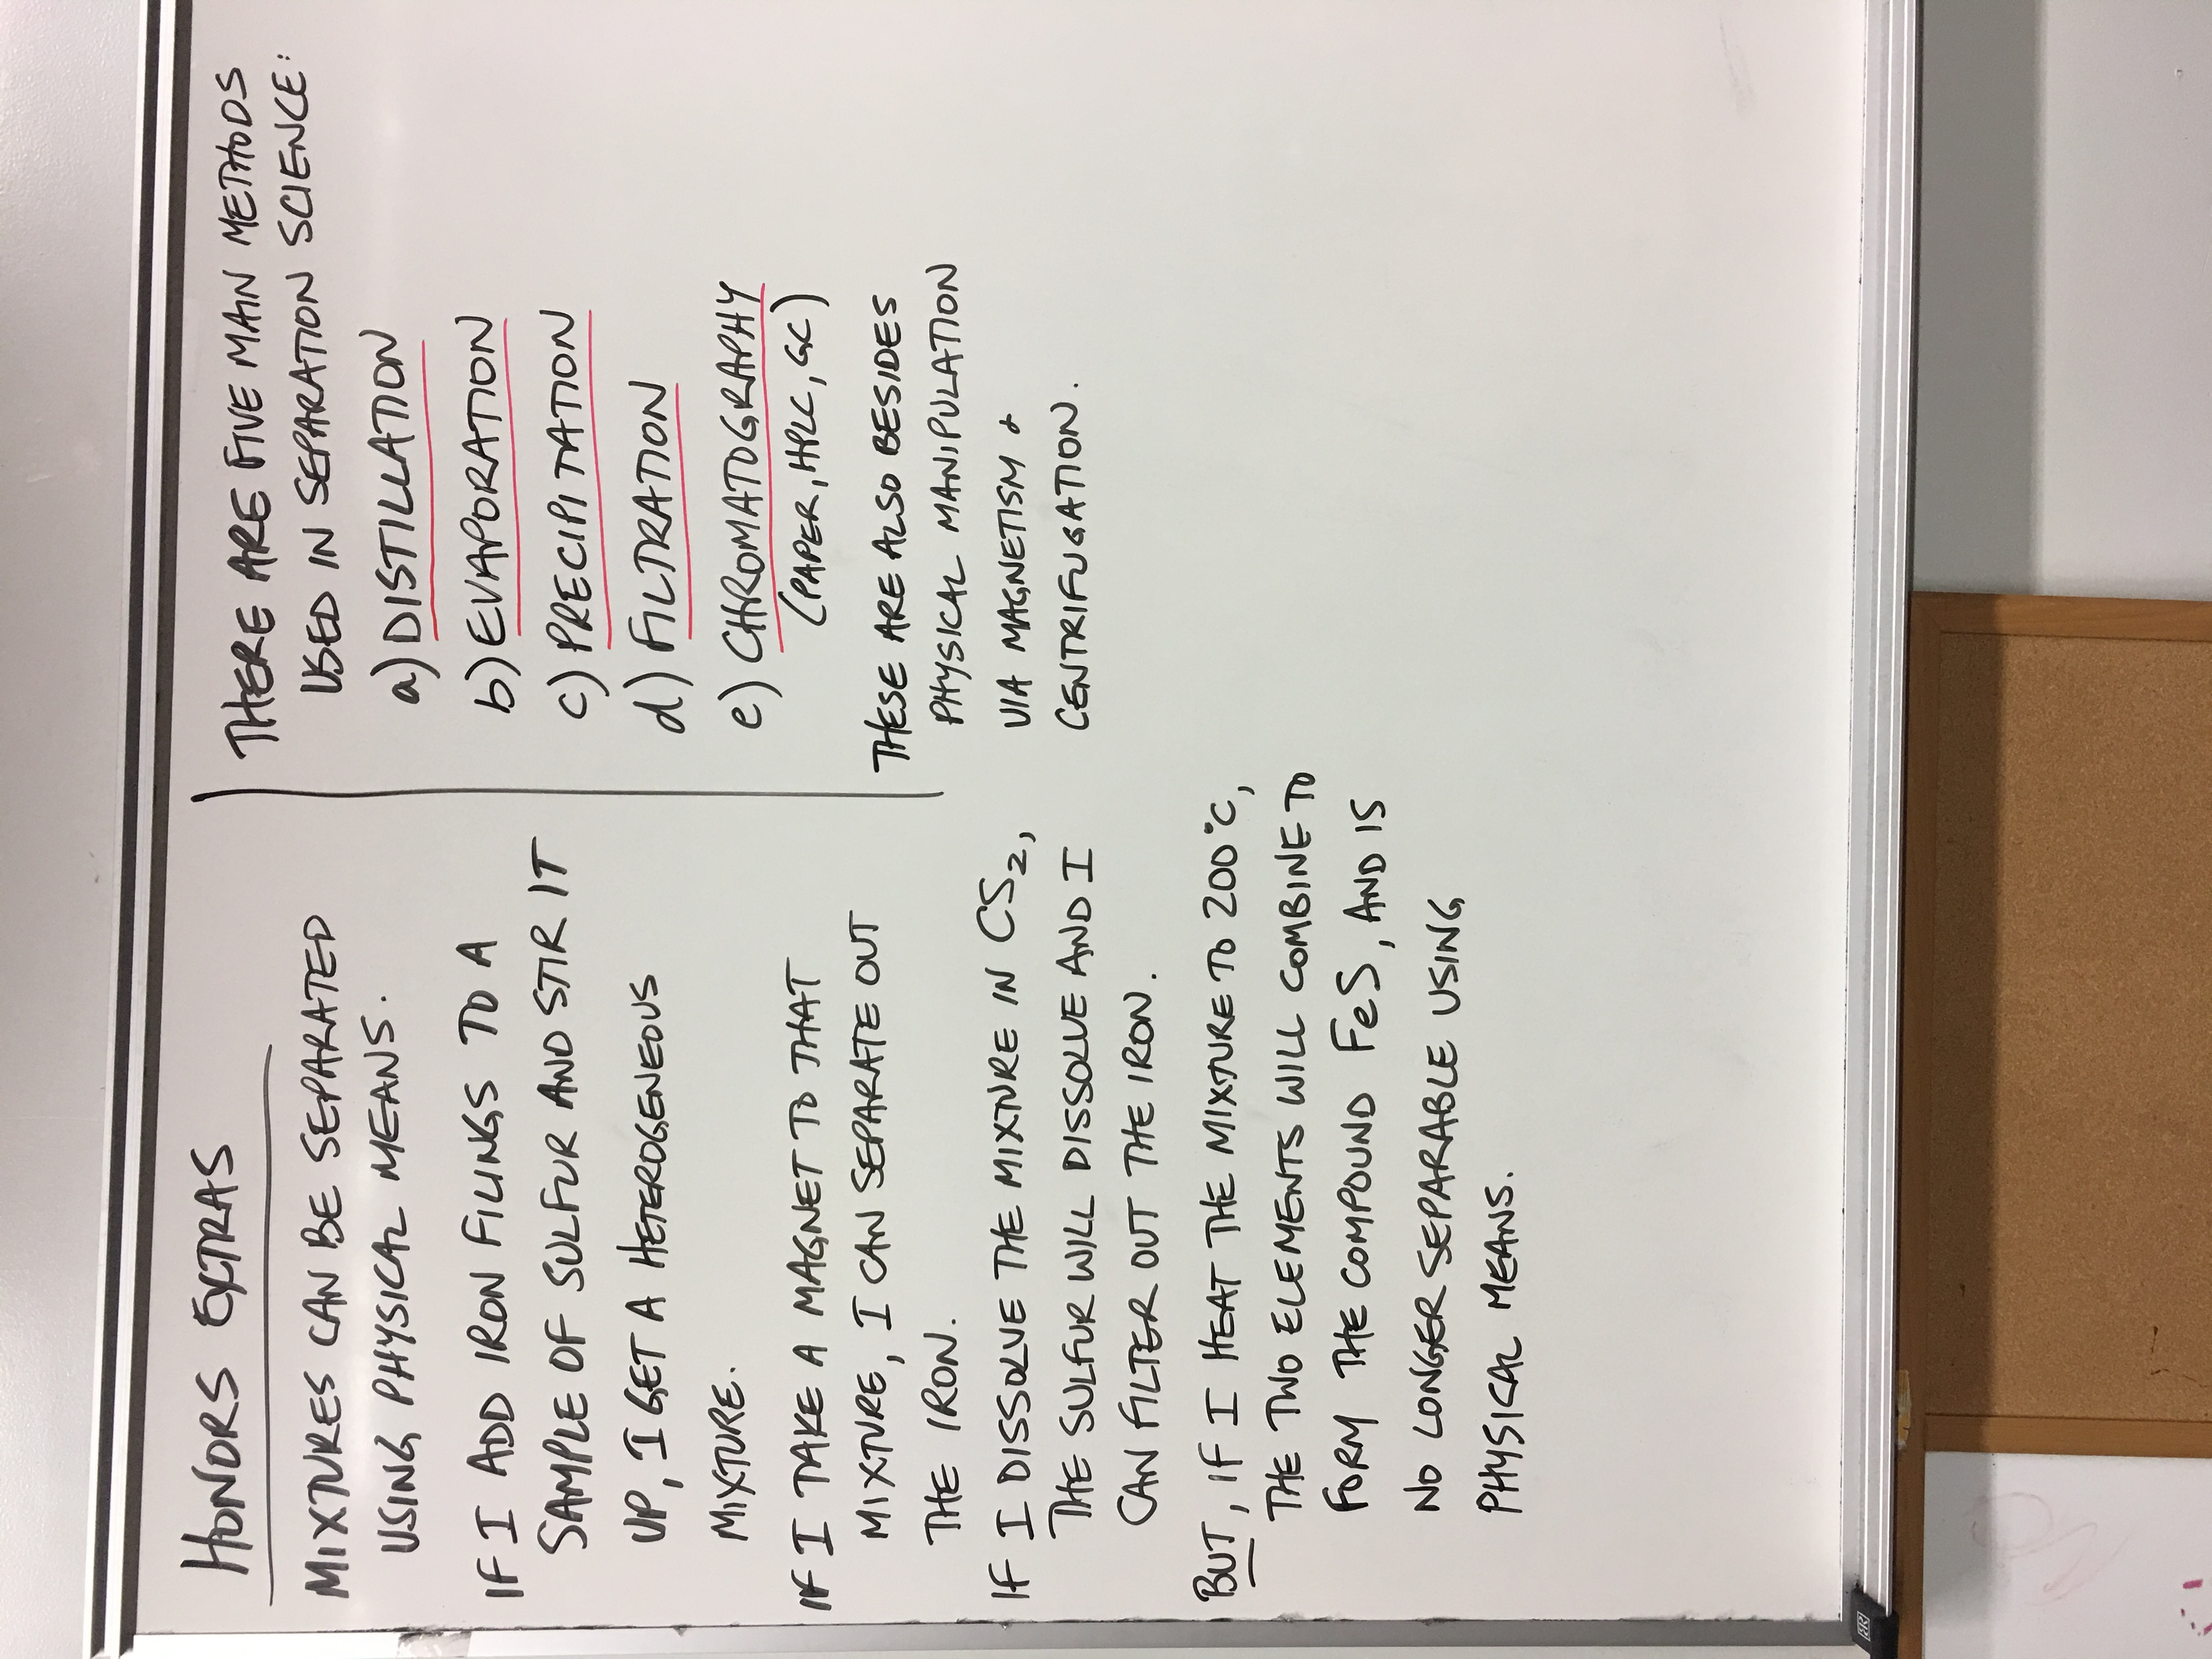 HONORS EXTRAS
MIXTURES CAN BE SEPARATED
USING PHYSICAL MEANS.
IF I ADD IRON FILINGS TO A
SAMPLE OF SULFUR AND STIR IT
UP, I GET A HETEROGENEOUS
MIXTURE.
IF I TAKE A MAGNET TO THAT
MIXTURE, I CAN SEPARATE OUT
THE IRON.
IF I DISSOLVE THE MIXTURE IN CS₂,
THE SULFUR WILL DISSOLVE AND I
CAN FILTER OUT THE IRON.
BUT, IF I HEAT THE MIXTURE TO 200°C,
THE TWO ELEMENTS WILL COMBINE TO
FORM THE COMPOUND FeS, AND IS
NO LONGER SEPARABLE USING
PHYSICAL MEANS.
THERE ARE FIVE MAIN METHODS
USED IN SEPARATION SCIENCE:
a) DISTILLATION
b) EVAPORATION
c) PRECIPITATION
d) FILTRATION
e) CHROMATOGRAPHY
(PAPER, HPLC, GC)
THESE ARE ALSO BESIDES
PHYSICAL MANIPULATION
VIA MAGNETISM &
CENTRIFUGATION.